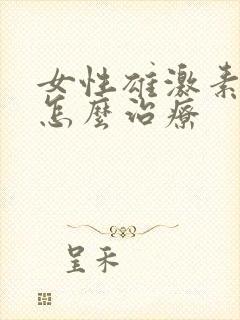 女性雄激素
怎麼治療
呈禾